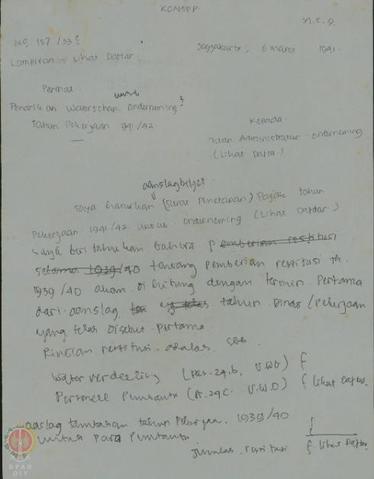 KONSEP
No 157/33
Jogjakarta, 6 maret 1941.
Lampiran : Lihat Daftar
Perihal
untuk
Penarikan Waterschap onderneming²
Tahun Pekerjaan 1941/42
Kepada
Tuan Administratur onderneming
(Lihat Daftar)
aanslagbiljet
Saya haturkan (surat Penetapan) Pajak tahun
Pekerjaan 1941/42 untuk onderneming (Lihat Daftar)
Saya beri tahukan bahwa pemberian restitusi
selama 1939/40 tentang pemberian restitusi th.
1939/40 akan dihitung dengan termin pertama
dari aanslag tahun Dinas/pekerjaan
yang telas disebut pertama
Rincian restitusi adalas sbb
Water verdeeling (Par. 29.b. V.W.O) f
Personeel Pembantu (Ps. 29C. V.W.O) f Lihat Daftar.
aanslag tambahan tahun Pekerjaan. 1939/40
untuk para Pembantu
Jumlah restitusi f Lihat Daftar.
BPAD
DIY